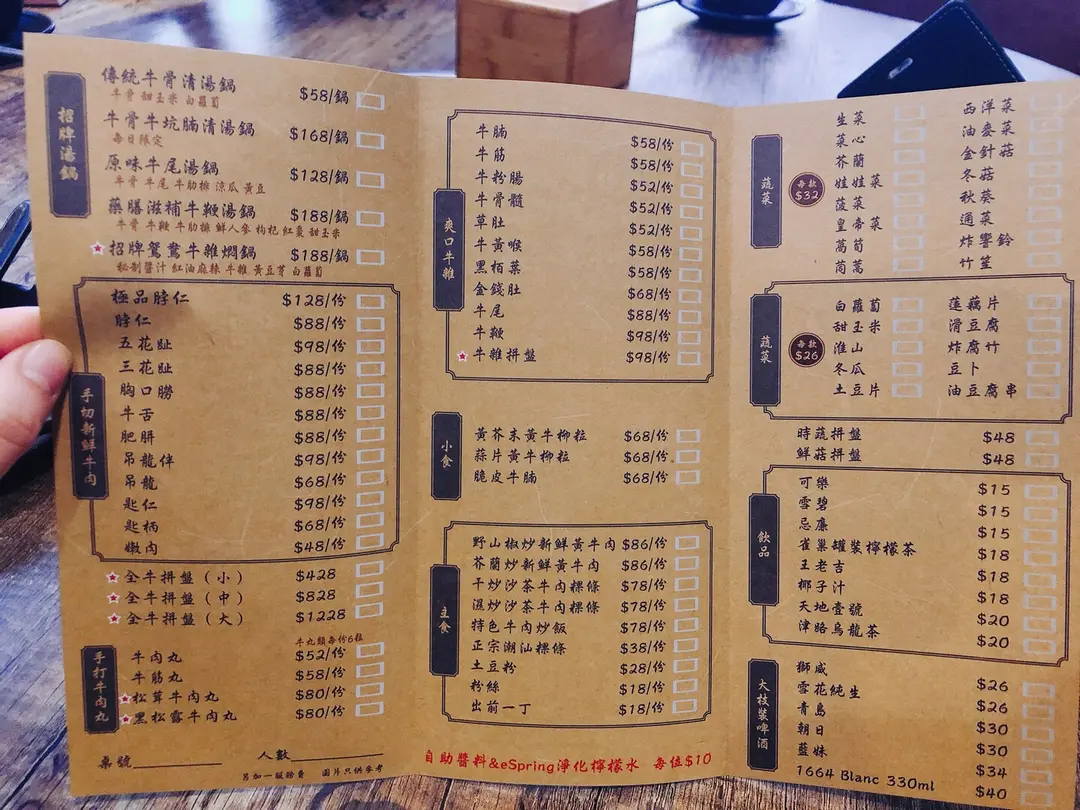 招牌湯鍋
傳統牛骨清湯鍋 $58/鍋
牛骨 甜玉米 白蘿蔔
牛骨牛坑腩清湯鍋 $168/鍋
每日限定
原味牛尾湯鍋 $128/鍋
牛骨 牛尾 牛肋排 涼瓜 黃豆
藥膳滋補牛鞭湯鍋 $188/鍋
牛骨 牛鞭 牛肋排 鮮人參 枸杞 紅棗 甜玉米
招牌鴛鴦牛雜燜鍋 $188/鍋
秘制醬汁 紅油麻辣 牛雜 黃豆芽 白蘿蔔
手切新鮮牛肉
極品脖仁 $128/份
脖仁 $88/份
五花趾 $98/份
三花趾 $88/份
胸口朥 $88/份
牛舌 $88/份
肥胼 $88/份
吊龍伴 $98/份
吊龍 $68/份
匙仁 $98/份
匙柄 $68/份
嫩肉 $48/份
全牛拼盤(小) $428
全牛拼盤(中) $828
全牛拼盤(大) $1228
手打牛肉丸
牛丸類每份6粒
牛肉丸 $52/份
牛筋丸 $58/份
松茸牛肉丸 $80/份
黑松露牛肉丸 $80/份
桌號 人數
另加一服務費 圖片只供參考
爽口牛雜
牛腩 $58/份
牛筋 $58/份
牛粉腸 $52/份
牛骨髓 $52/份
草肚 $52/份
牛黃喉 $58/份
黑栢葉 $58/份
金錢肚 $68/份
牛尾 $88/份
牛鞭 $98/份
牛雜拼盤 $98/份
小食
黃芥末黃牛柳粒 $68/份
蒜片黃牛柳粒 $68/份
脆皮牛腩 $68/份
主食
野山椒炒新鮮黃牛肉 $86/份
芥蘭炒新鮮黃牛肉 $86/份
干炒沙茶牛肉粿條 $78/份
濕炒沙茶牛肉粿條 $78/份
特色牛肉炒飯 $78/份
正宗潮汕粿條 $38/份
土豆粉 $28/份
粉絲 $18/份
出前一丁 $18/份
自助醬料&eSpring淨化檸檬水 每位$10
蔬菜
每款 $32
生菜 西洋菜
菜心 油麥菜
芥蘭 金針菇
娃娃菜 冬菇
菠菜 秋葵
皇帝菜 通菜
萵筍 炸響鈴
茼蒿 竹笙
蔬菜
每款 $26
白蘿蔔 蓮藕片
甜玉米 滑豆腐
淮山 炸腐竹
冬瓜 豆卜
土豆片 油豆腐串
時蔬拼盤 $48
鮮菇拼盤 $48
飲品
可樂 $15
雪碧 $15
忌廉 $15
雀巢罐裝檸檬茶 $18
王老吉 $18
椰子汁 $18
天地壹號 $20
津路烏龍茶 $20
大枝裝啤酒
獅威 $26
雪花純生 $26
青島 $30
朝日 $30
藍妹 $34
1664 Blanc 330ml $40